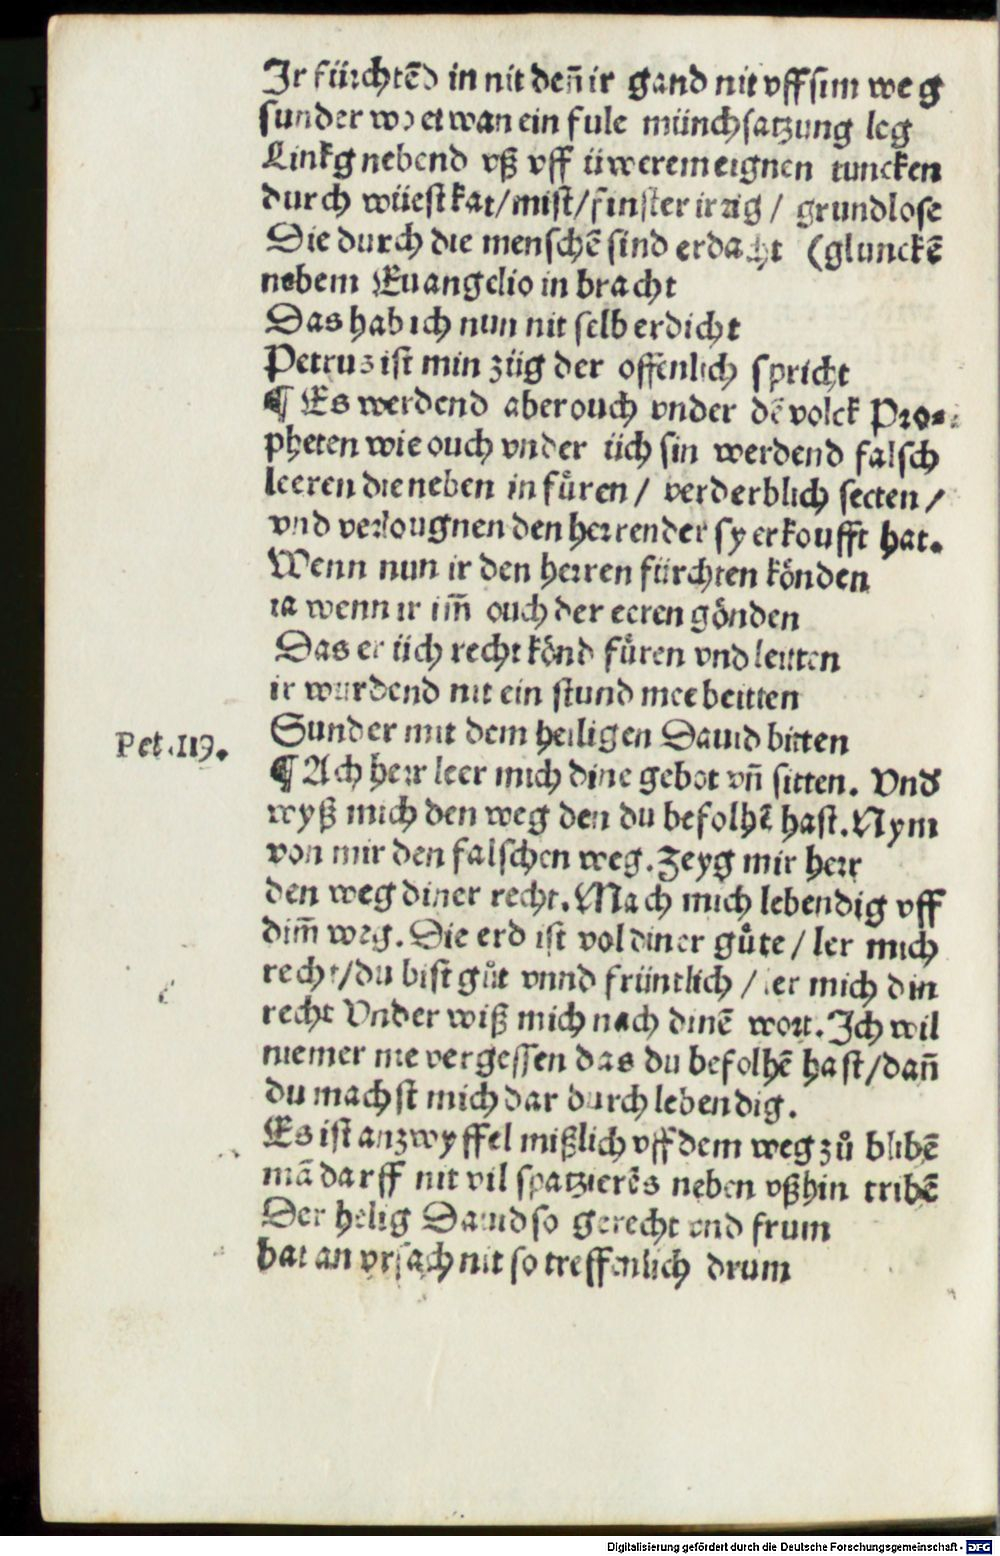 Jr fürchtēd in nit deñ ir gand nit vff sim weg
sunder wo etwan ein fule münchsatzung leg
Linkg nebend vß vff üwerem eignen tuncken
durch wüest kat/mist/finster irrig / grundlose
Die durch die menschē sind erdacht (glunckē
nebem Euangelio in bracht
Das hab ich nun nit selb erdicht
Petrus ist min züg der offenlich spricht
¶ Es werdend aber ouch vnder dē volck Pro⸗
pheten wie ouch vnder üch sin werdend falsch
leeren die neben in fůren / verderblich secten /
vnd verlougnen den herren der sy erkoufft hat.
Wenn nun ir den herren fürchten könden
ia wenn ir im̄ ouch der eeren gönden
Das er üch recht könd fůren vnd leitten
ir wurdend nit ein stund mee beitten
Sunder mit dem heiligen Dauid bitten
Pet.119.
¶ Ach herr leer mich dine gebot vn̄ sitten. Vnd
wyß mich den weg den du befolhē hast. Nym
von mir den falschen weg. Zeyg mir herr
den weg diner recht. Mach mich lebendig vff
dim̄ weg. Die erd ist vol diner gůte / ler mich
recht/du bist gůt vnnd früntlich / ler mich din
recht Vnder wiß mich nach dinē wort. Jch wil
niemer me vergessen das du befolhē hast/dañ
du machst mich dar durch lebendig.
Es ist an zwyffel mißlich vff dem weg zů blibē
mā darff nit vil spatzierēs neben vßhin tribē
Der helig Dauid so gerecht vnd frum
bat an vrsach nit so treffenlich drum
Digitalisierung gefördert durch die Deutsche Forschungsgemeinschaft - DFG